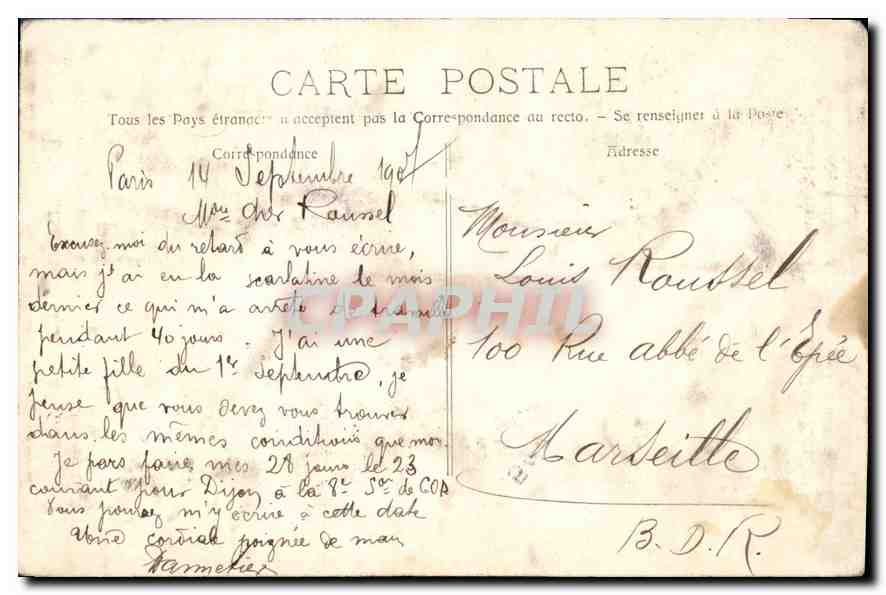 CARTE POSTALE
Tous les Pays étrangers n'acceptent pas la Correspondance au recto. – Se renseigner à la Poste
Correspondance
Adresse
Paris 14 Septembre 1907
Mon cher Roussel
Excusez moi du retard à vous écrire,
mais j'ai eu la scarlatine le mois
dernier ce qui m'a arrêté de travailler
pendant 40 jours. J'ai une
petite fille du 1er Septembre, je
pense que vous devez vous trouver
dans les mêmes conditions que moi.
Je pars faire mes 28 jours le 23
courant pour Dijon à la 8e Son de COA
Vous pouvez m'y écrire à cette date
Une cordiale poignée de main
Monsieur
Louis Roussel
100 Rue abbé de l'Epée
Marseille
B.D.R.
CPAPHIL